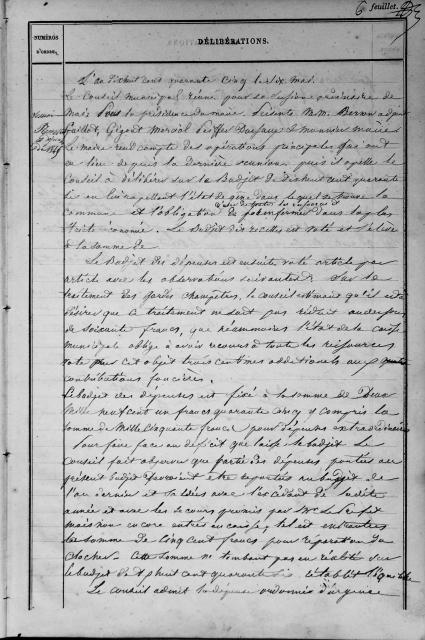 6 feuillet.
NUMÉROS
D'ORDRE.
DÉLIBÉRATIONS.
L'an dixhuit cent quarante cinq le six mai
Le Conseil municipal réuni pour sa session ordinaire de
Mai sous la présidence du maire. Présents M.M. Berron adjoint
le maire rend compte des opérations principales qui ont
eu lieu depuis la dernière réunion, puis il appelle le
Conseil à délibérer sur le Budjet de dixhuit cent quarante
six en lui rappellant l'état de gêne dans lequel se trouve la
commune et l'obligation de dans la plus
stricte économie. Le Budjet des recettes est voté et s'élève
à la somme de
Le Budjet des dépenses est ensuite voté article par
article avec les observations suivantes. Sur le
traitement des gardes champêtres, le conseil estimant qu'il est à
désirer que ce traitement ne soit pas réduit audessous
de soixante francs, que néanmoins l'état de la caisse
municipale oblige à avoir recours à toutes les ressources
vote pour cet objet trois centimes additionels aux quatre
contributions foncières.
Le budjet des dépenses est fixé à la somme de Deux
Mille neuf cent un francs quarante cinq y compris la
somme de Mille cinquante francs pour dépenses extraordinaires
Pour faire face au déficit que laisse le budjet le
Conseil fait observer que partie des dépenses portées au
présent budjet avaient été reportées au budjet de
l'an dernier et soldées avec l'excédant de ladite
année et avec les secours promis par Mr le Préfet
mais non encore entrés en caisse, tel est entr'autres
la somme de cinq cent francs pour réparation du
clocher. Cette somme ne tombant pas en réalité sur
le budjet de dixhuit cent quarante six, rétablit l'équilibre
Le conseil admet la dépense ordonnée d'urgence